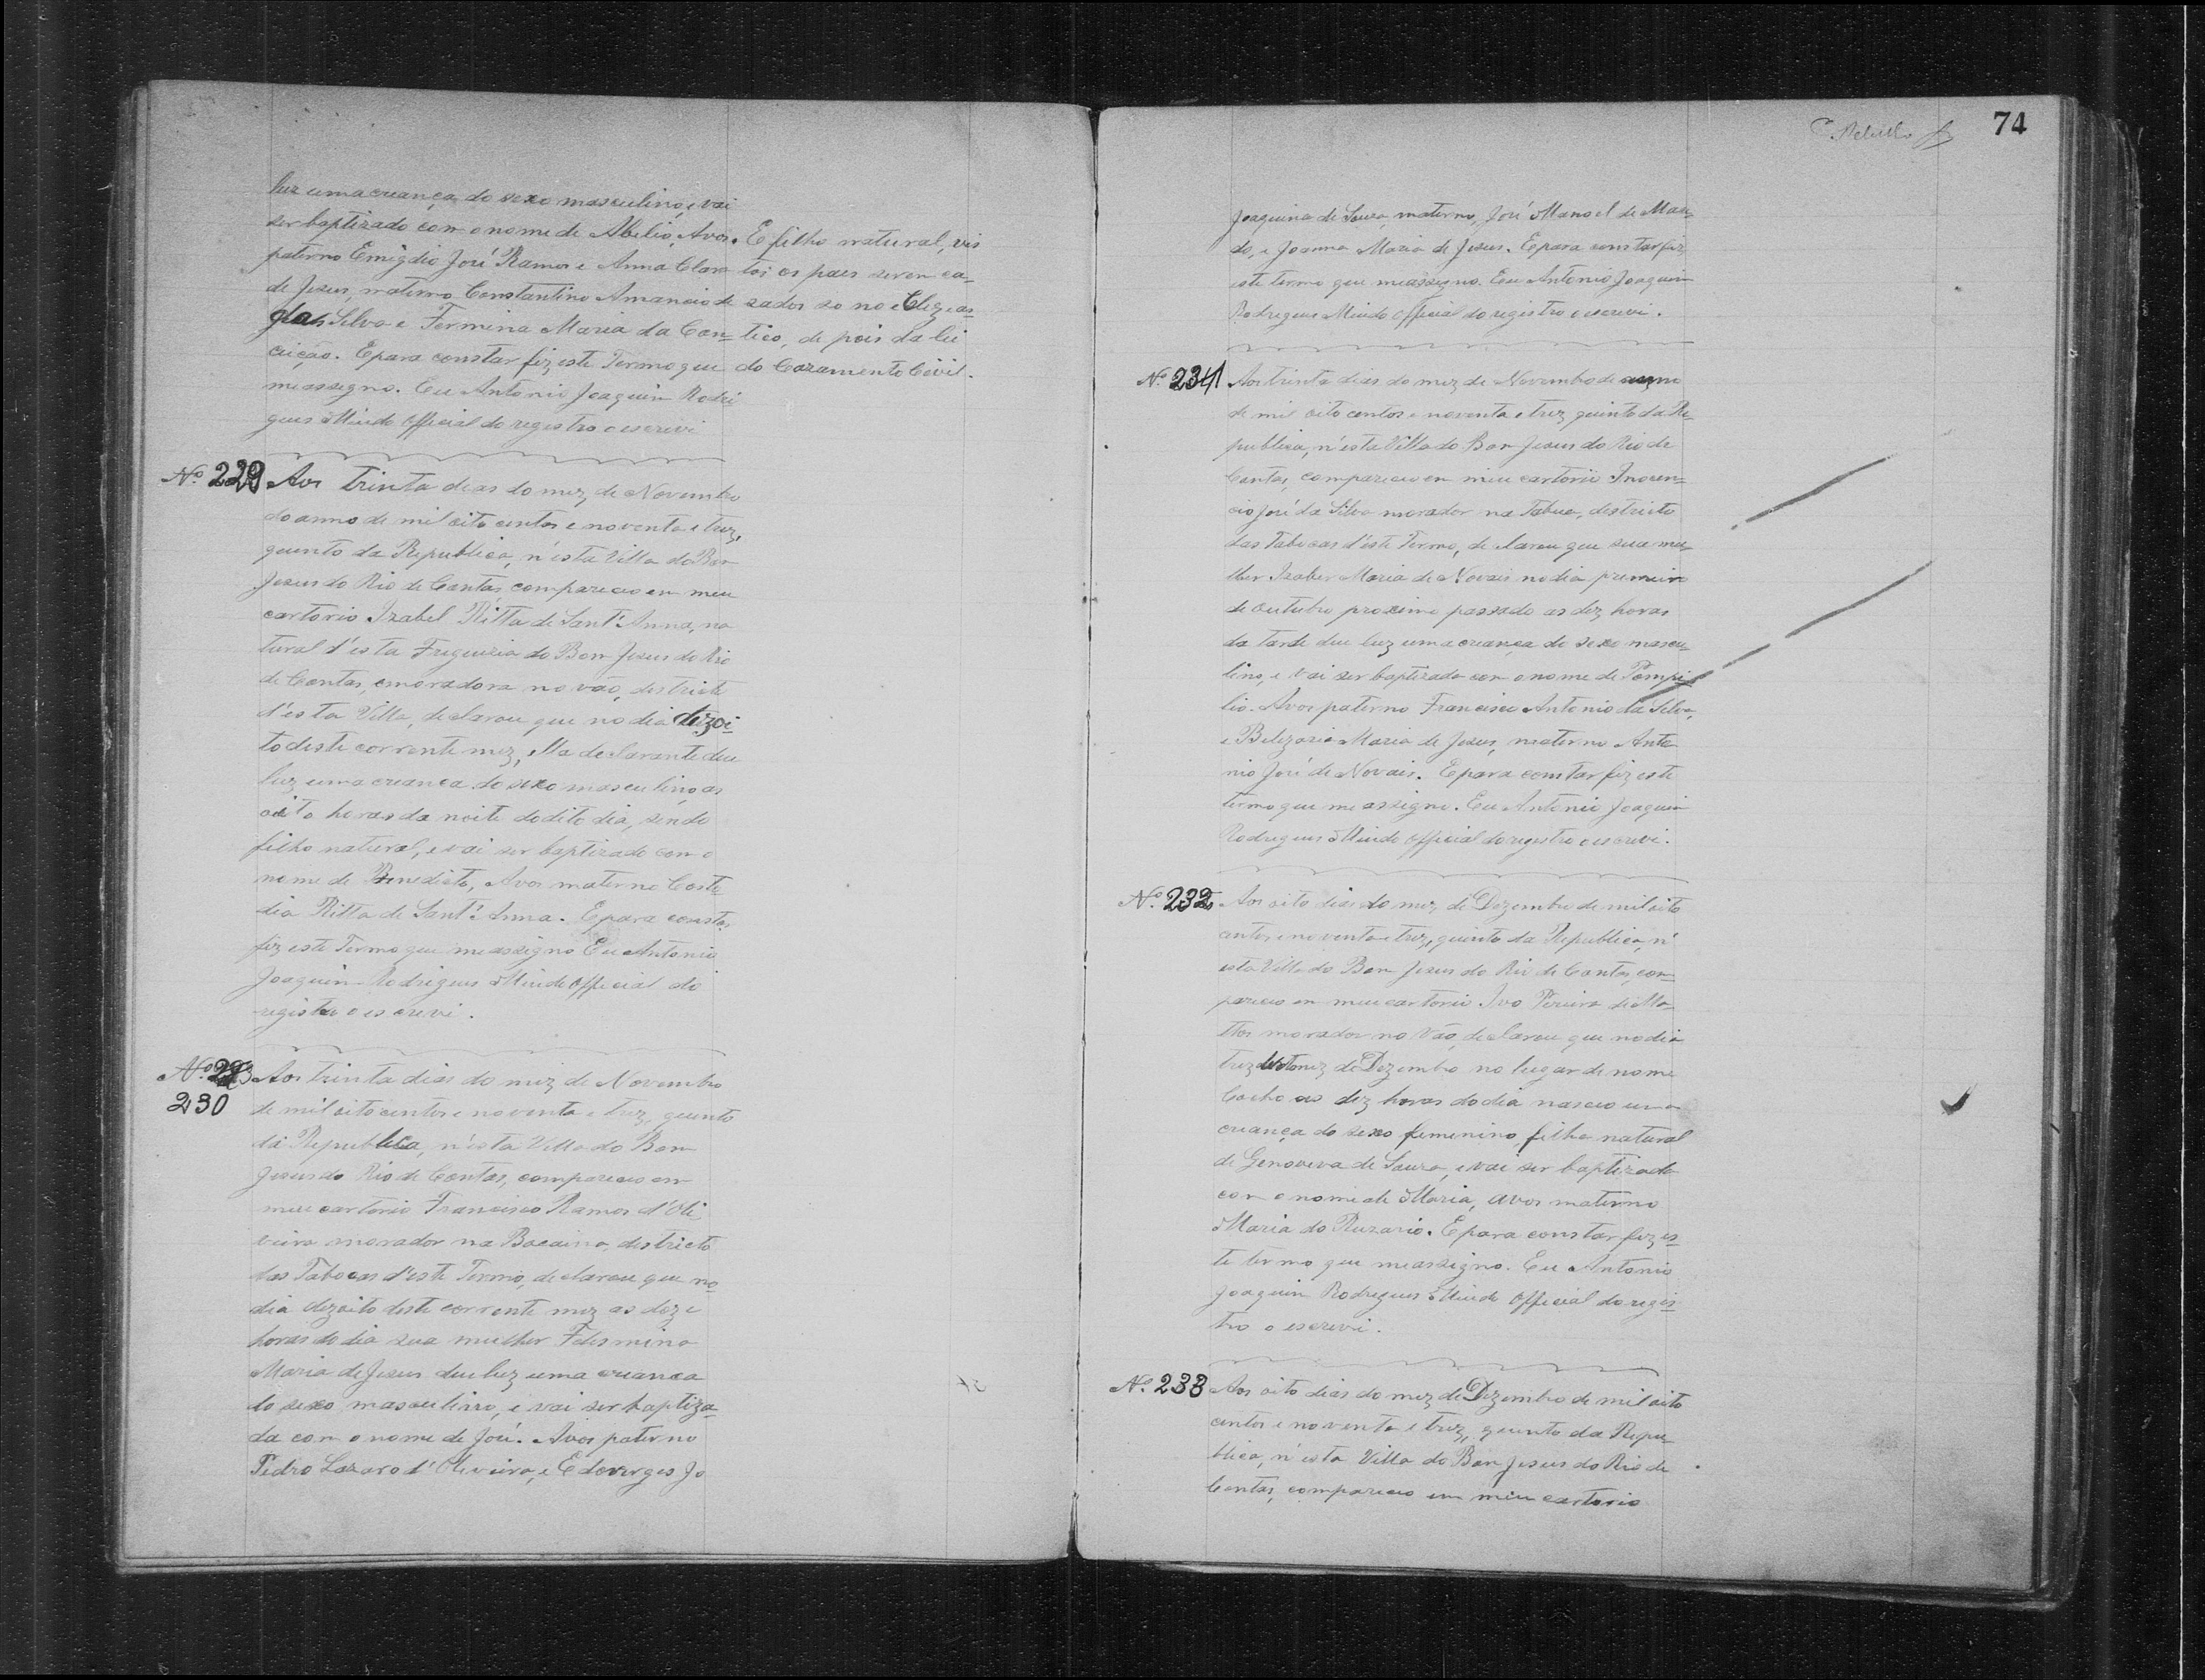 luz uma creança do sexo masculino, e vai
ser baptizado com o nome de Abilio, Avos
paterno Emigdio José Ramos e Anna Clara
de Jesus, materno Constantino Amancio de
Silva e Fermina Maria da Con-
ceição. E para constar fiz este Termo que
me assegno. Eu Antonio Joaquim Rodri
gues Miudo Official do registro o escrevi
E filho natural, vis
tos os paes serem ca-
zados so no Eclezeas-
tico, de pois da lei
do Cazamento Civil.
Nº 229 Aos trinta dias do mez de Novembro
do anno de mil oito centos e noventa e trez,
quinto da Republica, n'esta Villa do Bom
Jesus do Rio de Contas, compareceo em meu
cartorio Izabel Ritta de Sant'Anna, na
tural d'esta Freguezia do Bom Jesus do Rio
de Contas, e moradora no vão, destricto
d'esta Villa, declarou que no dia dezoi-
to deste corrente mez, ella declarante deu
luz uma creança do sexo masculino as
oito horas da noite do dito dia, sendo
filho natural, e vai ser baptizado com o
nome de Benedicto, Avos materno Custo
dia Ritta de Sant'Anna. E para constar
fiz este Termo que me assigno Eu Antonio
Joaquim Rodrigues Miudo Official do
registro o escrevi.
Nº
230
Aos trinta dias do mez de Novembro
de mil oito centos e noventa e trez, quinto
da Republica, n'esta Villa do Bom
Jesus do Rio de Contas, compareceo em
meu cartorio Francisco Ramos d'Oli
veira morador na Bocaina, destricto
das Tabocas d'este Termo, declarou que no
dia dezoito deste corrente mez as doze
horas do dia sua mulher Felesmina
Maria de Jesus deu luz uma creança
do sexo masculino, e vai ser baptiza-
da com o nome de José. Avos paterno
Pedro Lazaro d'Oliveira, e Edverges Jo
74
Joaquina de Souza, materno, José Manoel de Mace-
do, e Joanna Maria de Jesus. E para constar fiz
este termo que me assegno. Eu Antonio Joaquim
Rodrigues Miudo Official do registro o escrevi.
Nº 231 Aos trinta dias do mez de Novembro de
de mil oito centos e noventa e trez, quinto da Re-
publica, n'esta Villa do Bom Jesus do Rio de
Contas, compareceo em meu cartorio Inocen-
cio José da Silva morador na Tabua, destricto
das Tabocas d'este Termo, declarou que sua mu-
lher Izabel Maria de Novais no dia premeiro
de outubro proximo passado as dez horas
da tarde deu luz uma creança do sexo mascu-
lino, e vai ser baptizado com o nome de Pompi-
lio. Avos paterno Francisco Antonio da Silva,
e Belizaria Maria de Jesus, materno Anto
nio José de Novais. E para constar fiz este
termo que me assigno. Eu Antonio Joaquim
Rodrigues Miudo Official do registro o escrevi.
Nº 232 Aos oito dias do mez de Dezembro de mil oito
centos e noventa e trez, quinto da Republica, n'
esta Villa do Bom Jesus do Rio de Contas, com-
pareceo em meu cartorio Ivo Pereira de Ma-
ttos morador no Vão, declarou que no dia
trez deste mez de Dezembro no lugar de nome
Cocho as dez horas do dia nasceo uma
creança do sexo femenino, filha natural
de Genoveva de Souza, e vai ser baptizada
com o nome de Maria, avos materno
Maria do Ruzario. E para constar fiz es-
te termo que me assigno. Eu Antonio
Joaquim Rodrigues Miudo Official do regis-
tro o escrevi.
Nº 233 Aos oito dias do mez de Dezembro de mil oito
centos e noventa e trez, quinto da Repu-
blica, n'esta Villa do Bom Jesus do Rio de
Contas, compareceo em meu cartorio